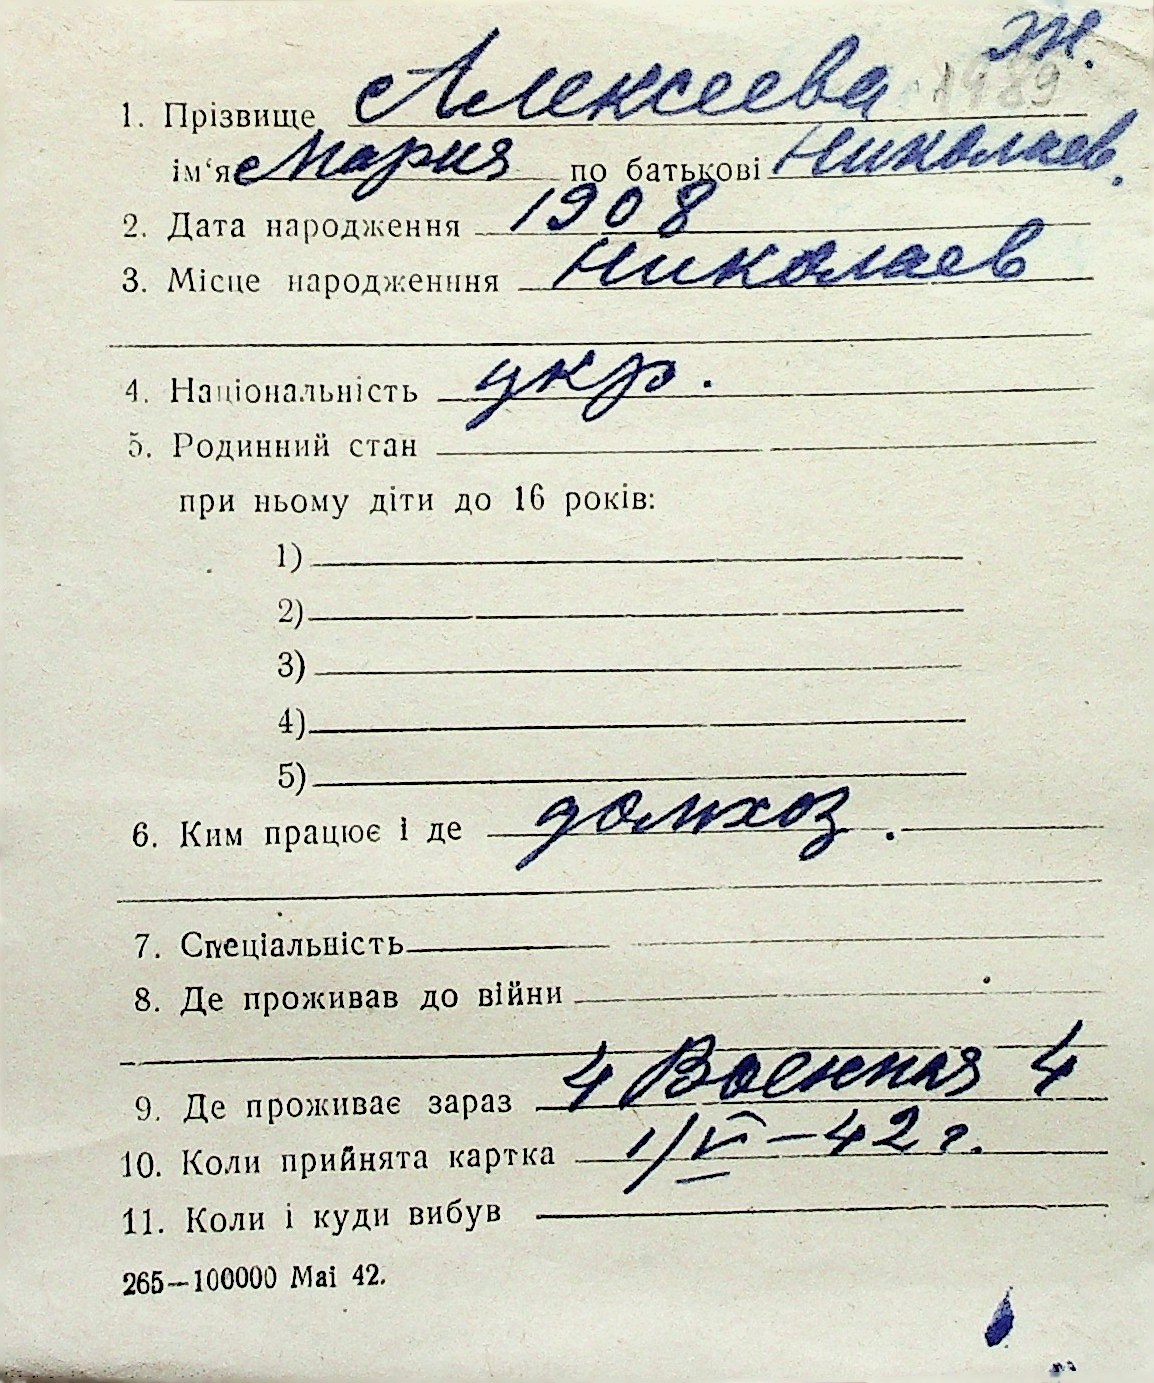 ж.
1. Прізвище Алексеева 1989
ім‘я Мария по батькові Николаев.
2. Дата народження 1908
3. Місце народженння Николаев
4. Національність укр.
5. Родинний стан
при ньому діти до 16 років:
1)
2)
3)
4)
5)
6. Ким працює і де домхоз.
7. Спеціальність
8. Де проживав до війни
9. Де проживає зараз 4 Военная 4
10. Коли прийнята картка 1/VI–42 г.
11. Коли і куди вибув
265—100000 Mai 42.